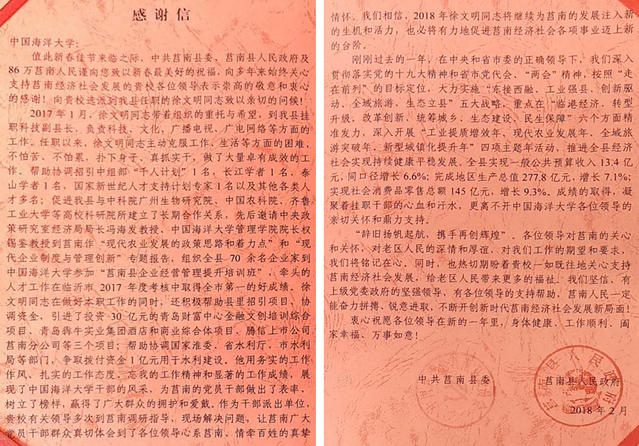 感谢信
中国海洋大学：
值此新春佳节来临之际，中共莒南县委、莒南县人民政府及
86万莒南人民谨向您致以新春最美好的祝福，向多年来始终关心
支持莒南经济社会发展的贵校各位领导表示崇高的敬意和衷心
的感谢！向贵校选派到我县任职的徐文明同志致以亲切的问候！
2017年1月，徐文明同志带着组织的重托与希望，到我县挂
职科技副县长，负责科技、文化、广播电视、广电网络等方面的
工作。任职以来，徐文明同志主动克服工作、生活等方面的困难，
不怕苦、不怕累，扑下身子、真抓实干，做了大量卓有成效的工
作。帮助协调招引中组部“千人计划”1名、长江学者1名、泰
山学者1名，国家新世纪人才支持计划专家1名以及其他各类人
才多名；促进我县与中科院广州生物研究院、中国农科院、齐鲁
工业大学等高校科研院所建立了长期合作关系，先后邀请中央政
策研究室经济局局长冯海发教授、中国海洋大学管理学院院长权
锡鉴教授到莒南作“现代农业发展的政策思路和着力点”和“现
代企业制度与管理创新”专题报告，组织全县70余名企业家到
中国海洋大学参加“莒南县企业经营管理提升培训班”，牵头的
人才工作在临沂市2017年度考核中取得全市第一的好成绩。徐
文明同志在做好本职工作的同时，还积极帮助县里招引项目、协
调资金，引进了投资30亿元的青岛财富中心金融文创培训综合
项目、青岛犇牛实业集团酒店和商业综合体项目、腾信上市公司
莒南分公司等三个项目；帮助协调国家淮委、省水利厅、市水利
局等部门，争取拨付资金1亿元用于水利建设。他用务实的工作
作风、扎实的工作态度、忘我的工作精神和显著的工作成绩，展
现了中国海洋大学干部的风采，为莒南的党员干部做出了表率，
树立了榜样，赢得了广大群众的拥护和爱戴。作为干部派出单位，
贵校有关领导多次到莒南调研指导，现场解决问题，让莒南广大
党员干部群众真切体会到了各位领导心系莒南、情牵百姓的真挚
情怀。我们相信，2018年徐文明同志将继续为莒南的发展注入新
的生机和活力，也必将有力地促进莒南经济社会各项事业迈上新
的台阶。
刚刚过去的一年，在中央和省市委的正确领导下，我们深入
贯彻落实党的十九大精神和省市党代会、“两会”精神，按照“走
在前列”的目标定位，大力实施“东接西融、工业强县、创新驱
动、全域旅游、生态立县”五大战略，重点在“临港经济、转型
升级、改革创新、统筹城乡、生态建设、民生保障”六个方面精
准发力，深入开展“工业提质增效年、现代农业发展年、全域旅
游突破年、新型城镇化提升年”四项主题年活动，推进全县经济
社会实现持续健康平稳发展。全县实现一般公共预算收入13.4亿
元，同口径增长6.6%；完成地区生产总值277.8亿元，增长7.1%；
实现社会消费品零售总额145亿元，增长9.3%。成绩的取得，凝
聚着挂职干部的心血和汗水，更离不开中国海洋大学各位领导的
亲切关怀和鼎力支持。
“辞旧扬帆起航，携手再创辉煌”。各位领导对莒南的关心
和关怀、对老区人民的深情和厚谊、对我们工作的期望和要求，
我们将铭记在心。同时，也热切期盼着贵校一如既往地关心支持
莒南经济社会发展，给老区人民带来更多的福祉。我们坚信，有
上级党委政府的坚强领导，有各位领导的支持帮助，莒南人民一定
能奋力拼搏、锐意进取，不断开创新时代莒南经济社会发展新局面！
衷心祝愿各位领导在新的一年里，身体健康、工作顺利、阖
家幸福、万事如意！
中共莒南县委 莒南县人民政府
2018年2月